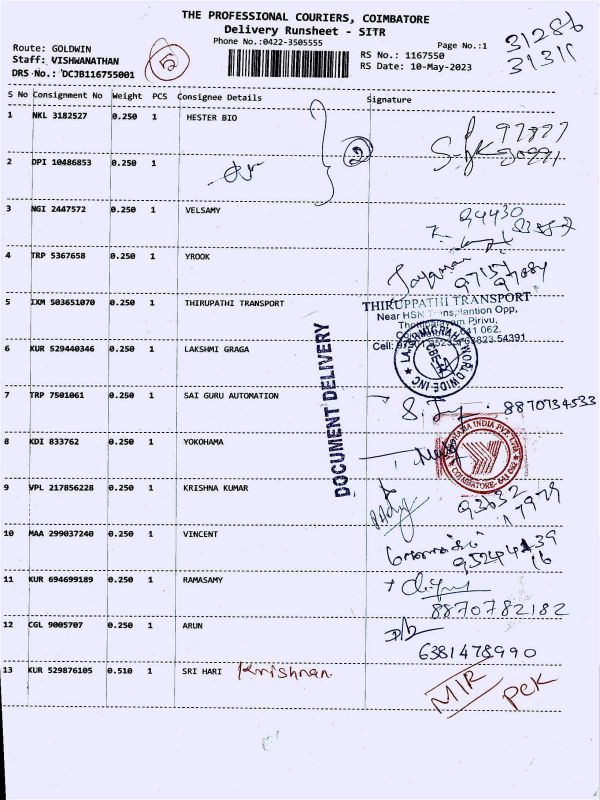 THE PROFESSIONAL COURIERS, COIMBATORE
Delivery Runsheet - SITR
Phone No.:0422-3505555
Page No.:1
31286
31311
Route: GOLDWIN
Staff: VISHWANATHAN
DRS No.: DCJB116755001
RS No.: 1167550
RS Date: 10-May-2023
S No Consignment No Weight PCS Consignee Details Signature
1 NKL 3182527 0.250 1 HESTER BIO
2 DPI 10486853 0.250 1
3 NGI 2447572 0.250 1 VELSAMY
4 TRP 5367658 0.250 1 YROOK
5 IXM 503651070 0.250 1 THIRUPATHI TRANSPORT
THIRUPPATHI TRANSPORT
Near HSN Transplantion Opp,
Pirivu,
641 062.
Cell:
6 KUR 529440346 0.250 1 LAKSHMI GRAGA
DOCUMENT DELIVERY
7 TRP 7501061 0.250 1 SAI GURU AUTOMATION 8870734533
8 KDI 833762 0.250 1 YOKOHAMA
INDIA PVT LTD
COIMBATORE - 641 062
9 VPL 217856228 0.250 1 KRISHNA KUMAR 93632
7979
10 MAA 299037240 0.250 1 VINCENT
11 KUR 694699189 0.250 1 RAMASAMY
8870782182
12 CGL 9005707 0.250 1 ARUN
6381478990
13 KUR 529876105 0.510 1 SRI HARI Krishnan.
MIR
PCK